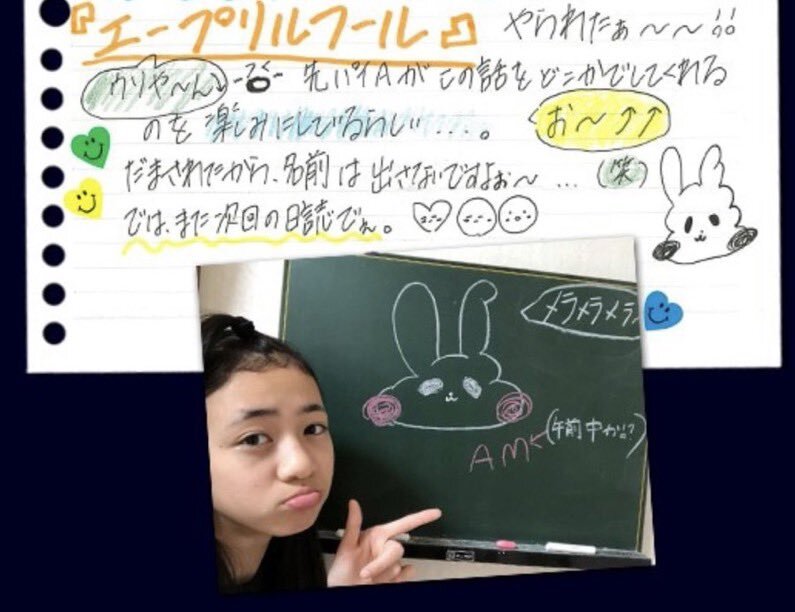 『エープリルフール』 やられたぁ〜〜!!
ウリャ〜ん 先パイAがこの話をどこかでしてくれる
のを楽しみにしているらしい・・・。 お〜↑↑
だまされたから、名前は出さないですよぉ〜…(笑)
では、また次回の日誌でぇ。
メラメラメラ
AM←(午前中か!!?)